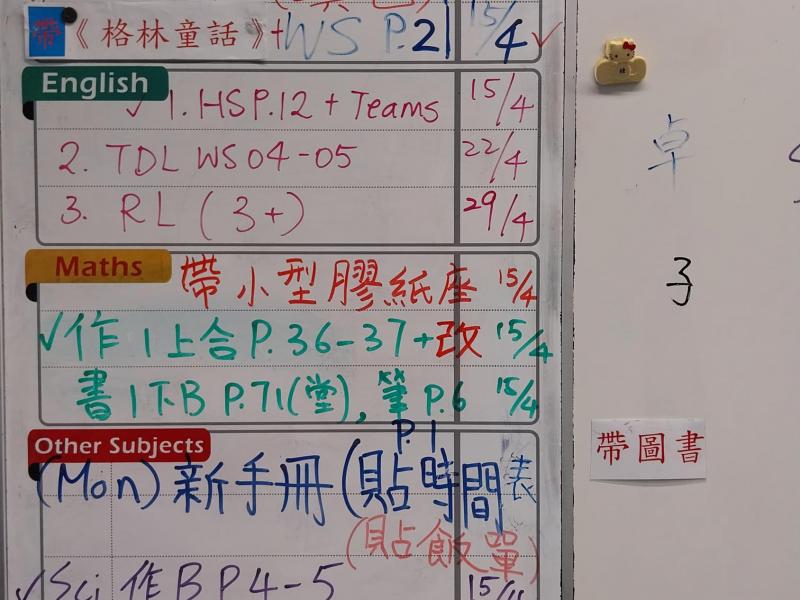 帶《格林童話》+WS P.21 15/4 ✓
English
✓ 1. HS P.12 + Teams 15/4
2. TDL WS 04-05 22/4
3. RL (3+) 29/4
Maths
帶小型膠紙座 15/4
✓作1上合P.36-37+改 15/4
書1下B P.71(堂), 筆 P.6 15/4
Other Subjects
P.1
(Mon) 新手冊(貼時間表
(貼飯單)
✓Sci 作B P4-5
卓
子
帶圖書